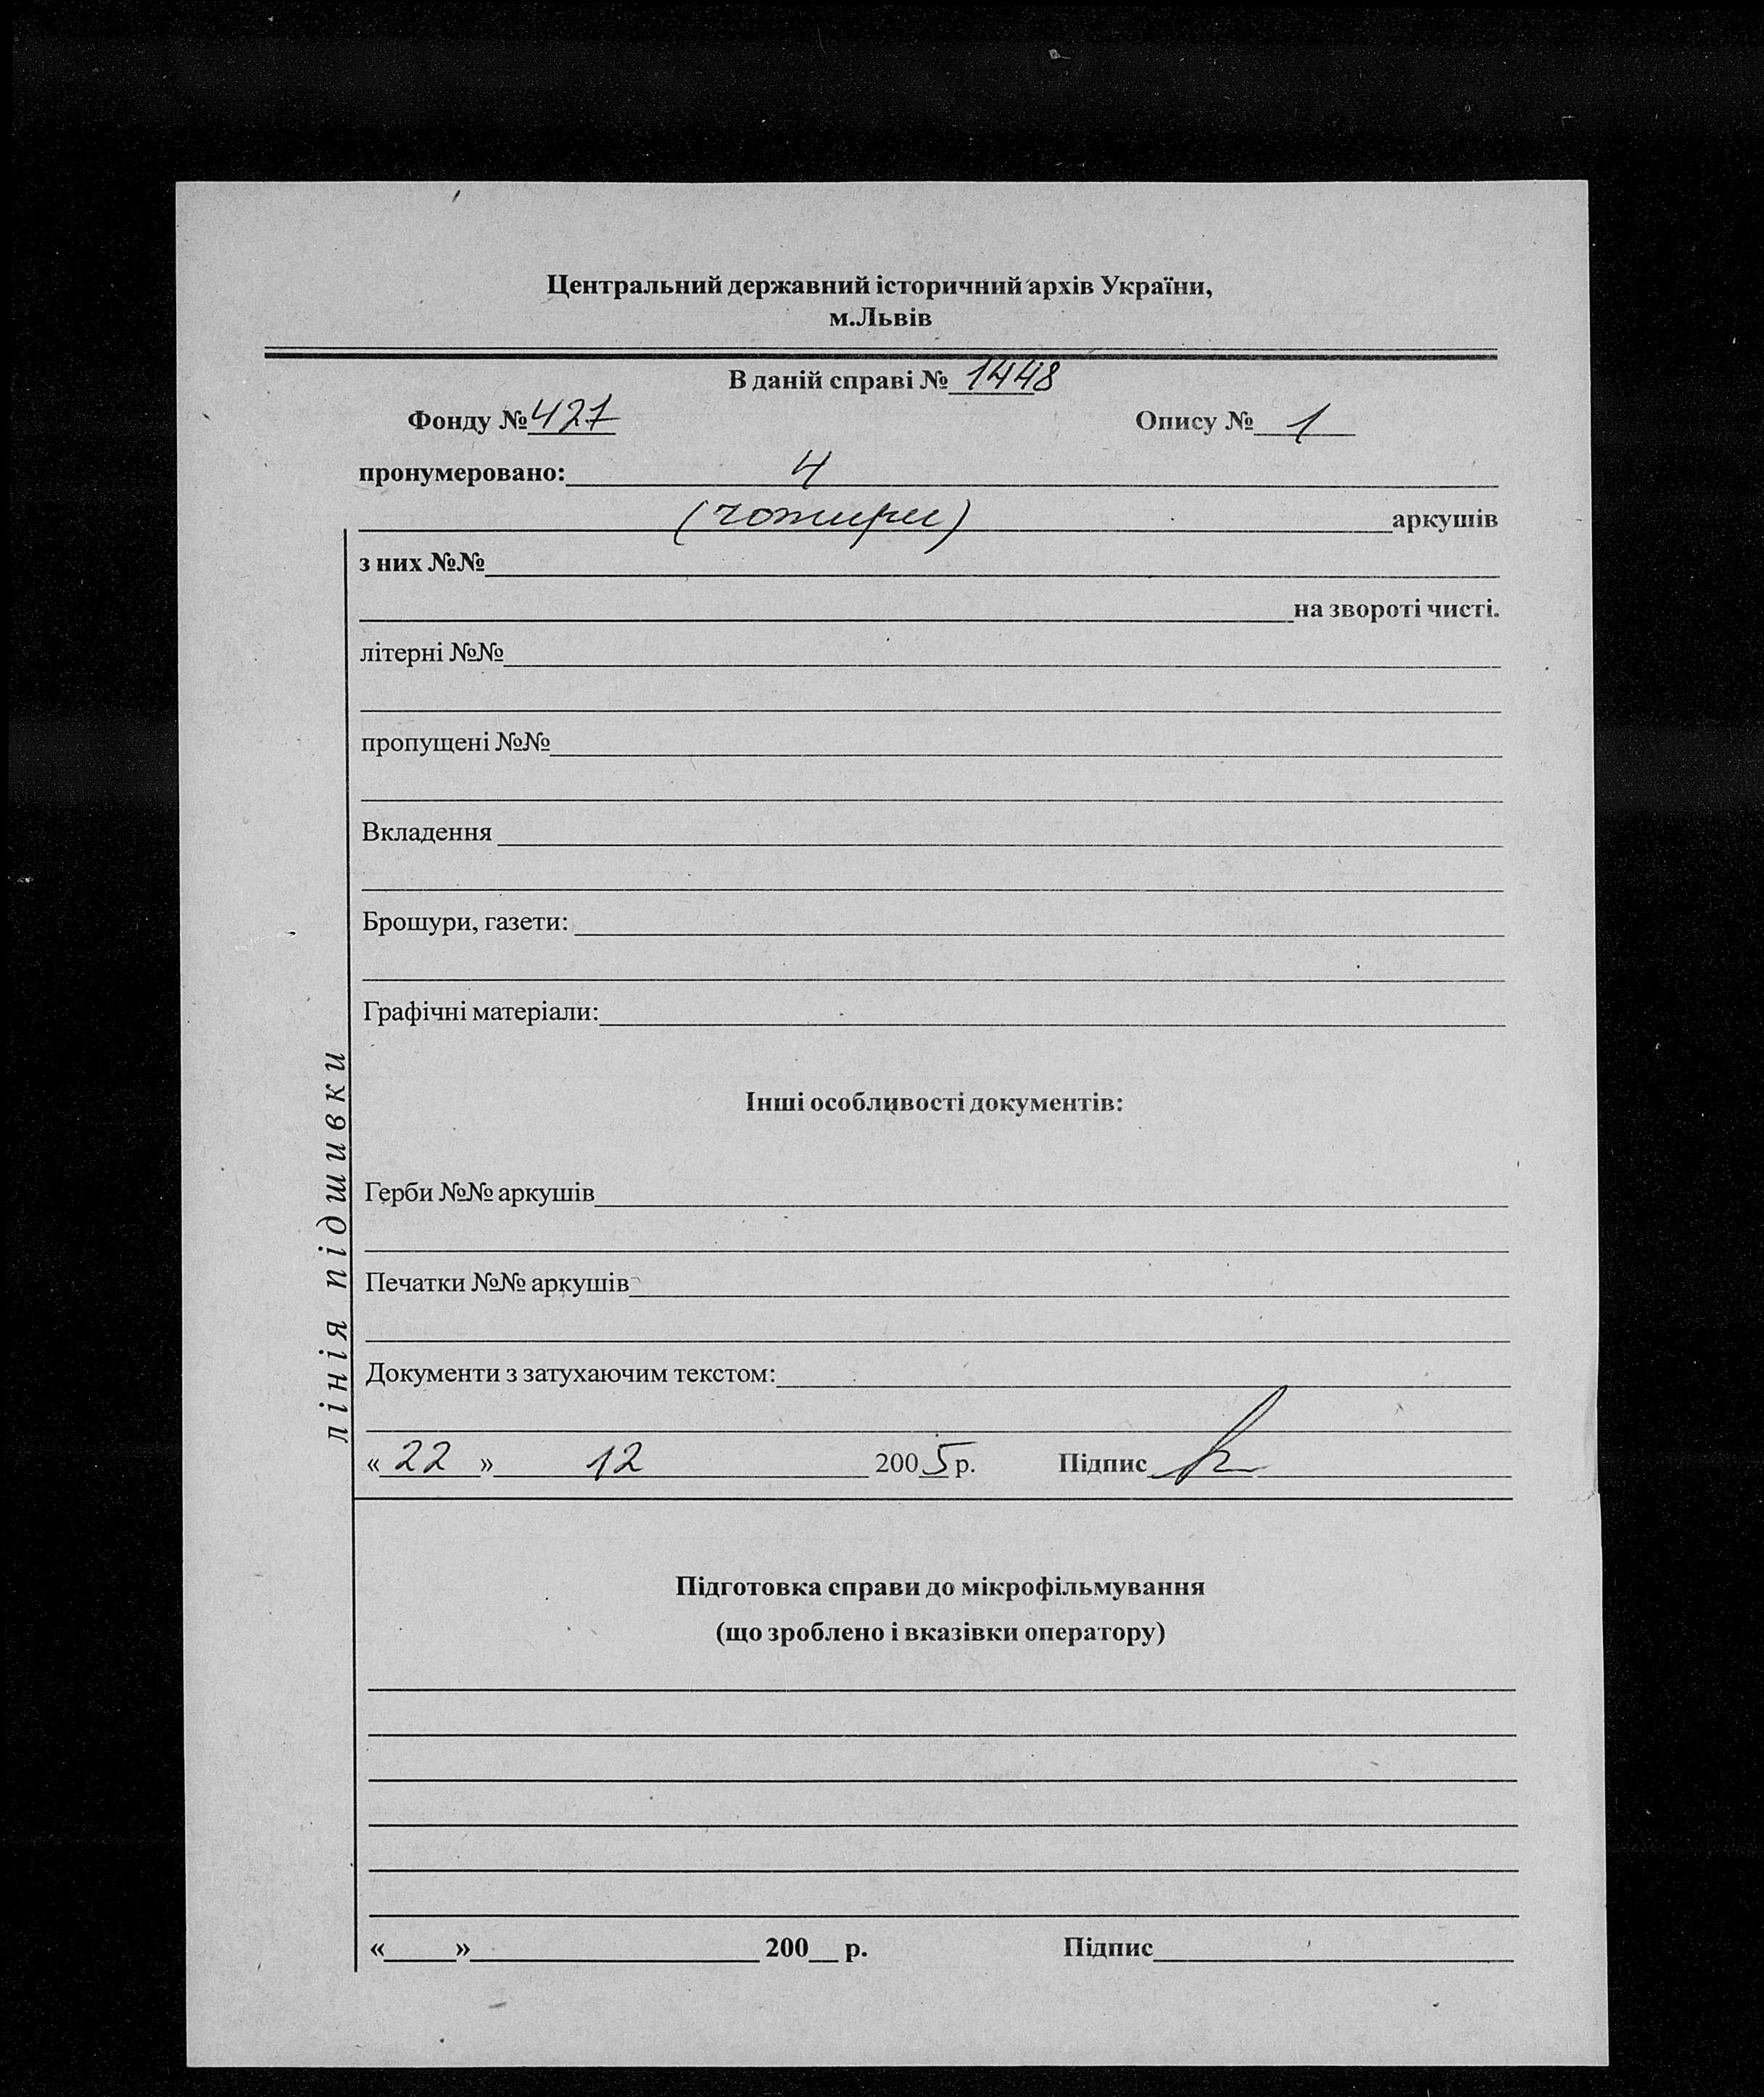 Центральний державний історичний архів України,
м.Львів
В даній справі № 1448
Фонду № 427 Опису № 1
пронумеровано: 4
(чотири) аркушів
з них №№
на звороті чисті.
літерні №№
пропущені №№
Вкладення
Брошури, газети:
Графічні матеріали:
Інші особливості документів:
Герби №№ аркушів
Печатки №№ аркушів
Документи з затухаючим текстом:
« 22 » 12 2005 р. Підпис
лінія підшивки
Підготовка справи до мікрофільмування
(що зроблено і вказівки оператору)
«____»____ 200__ р. Підпис